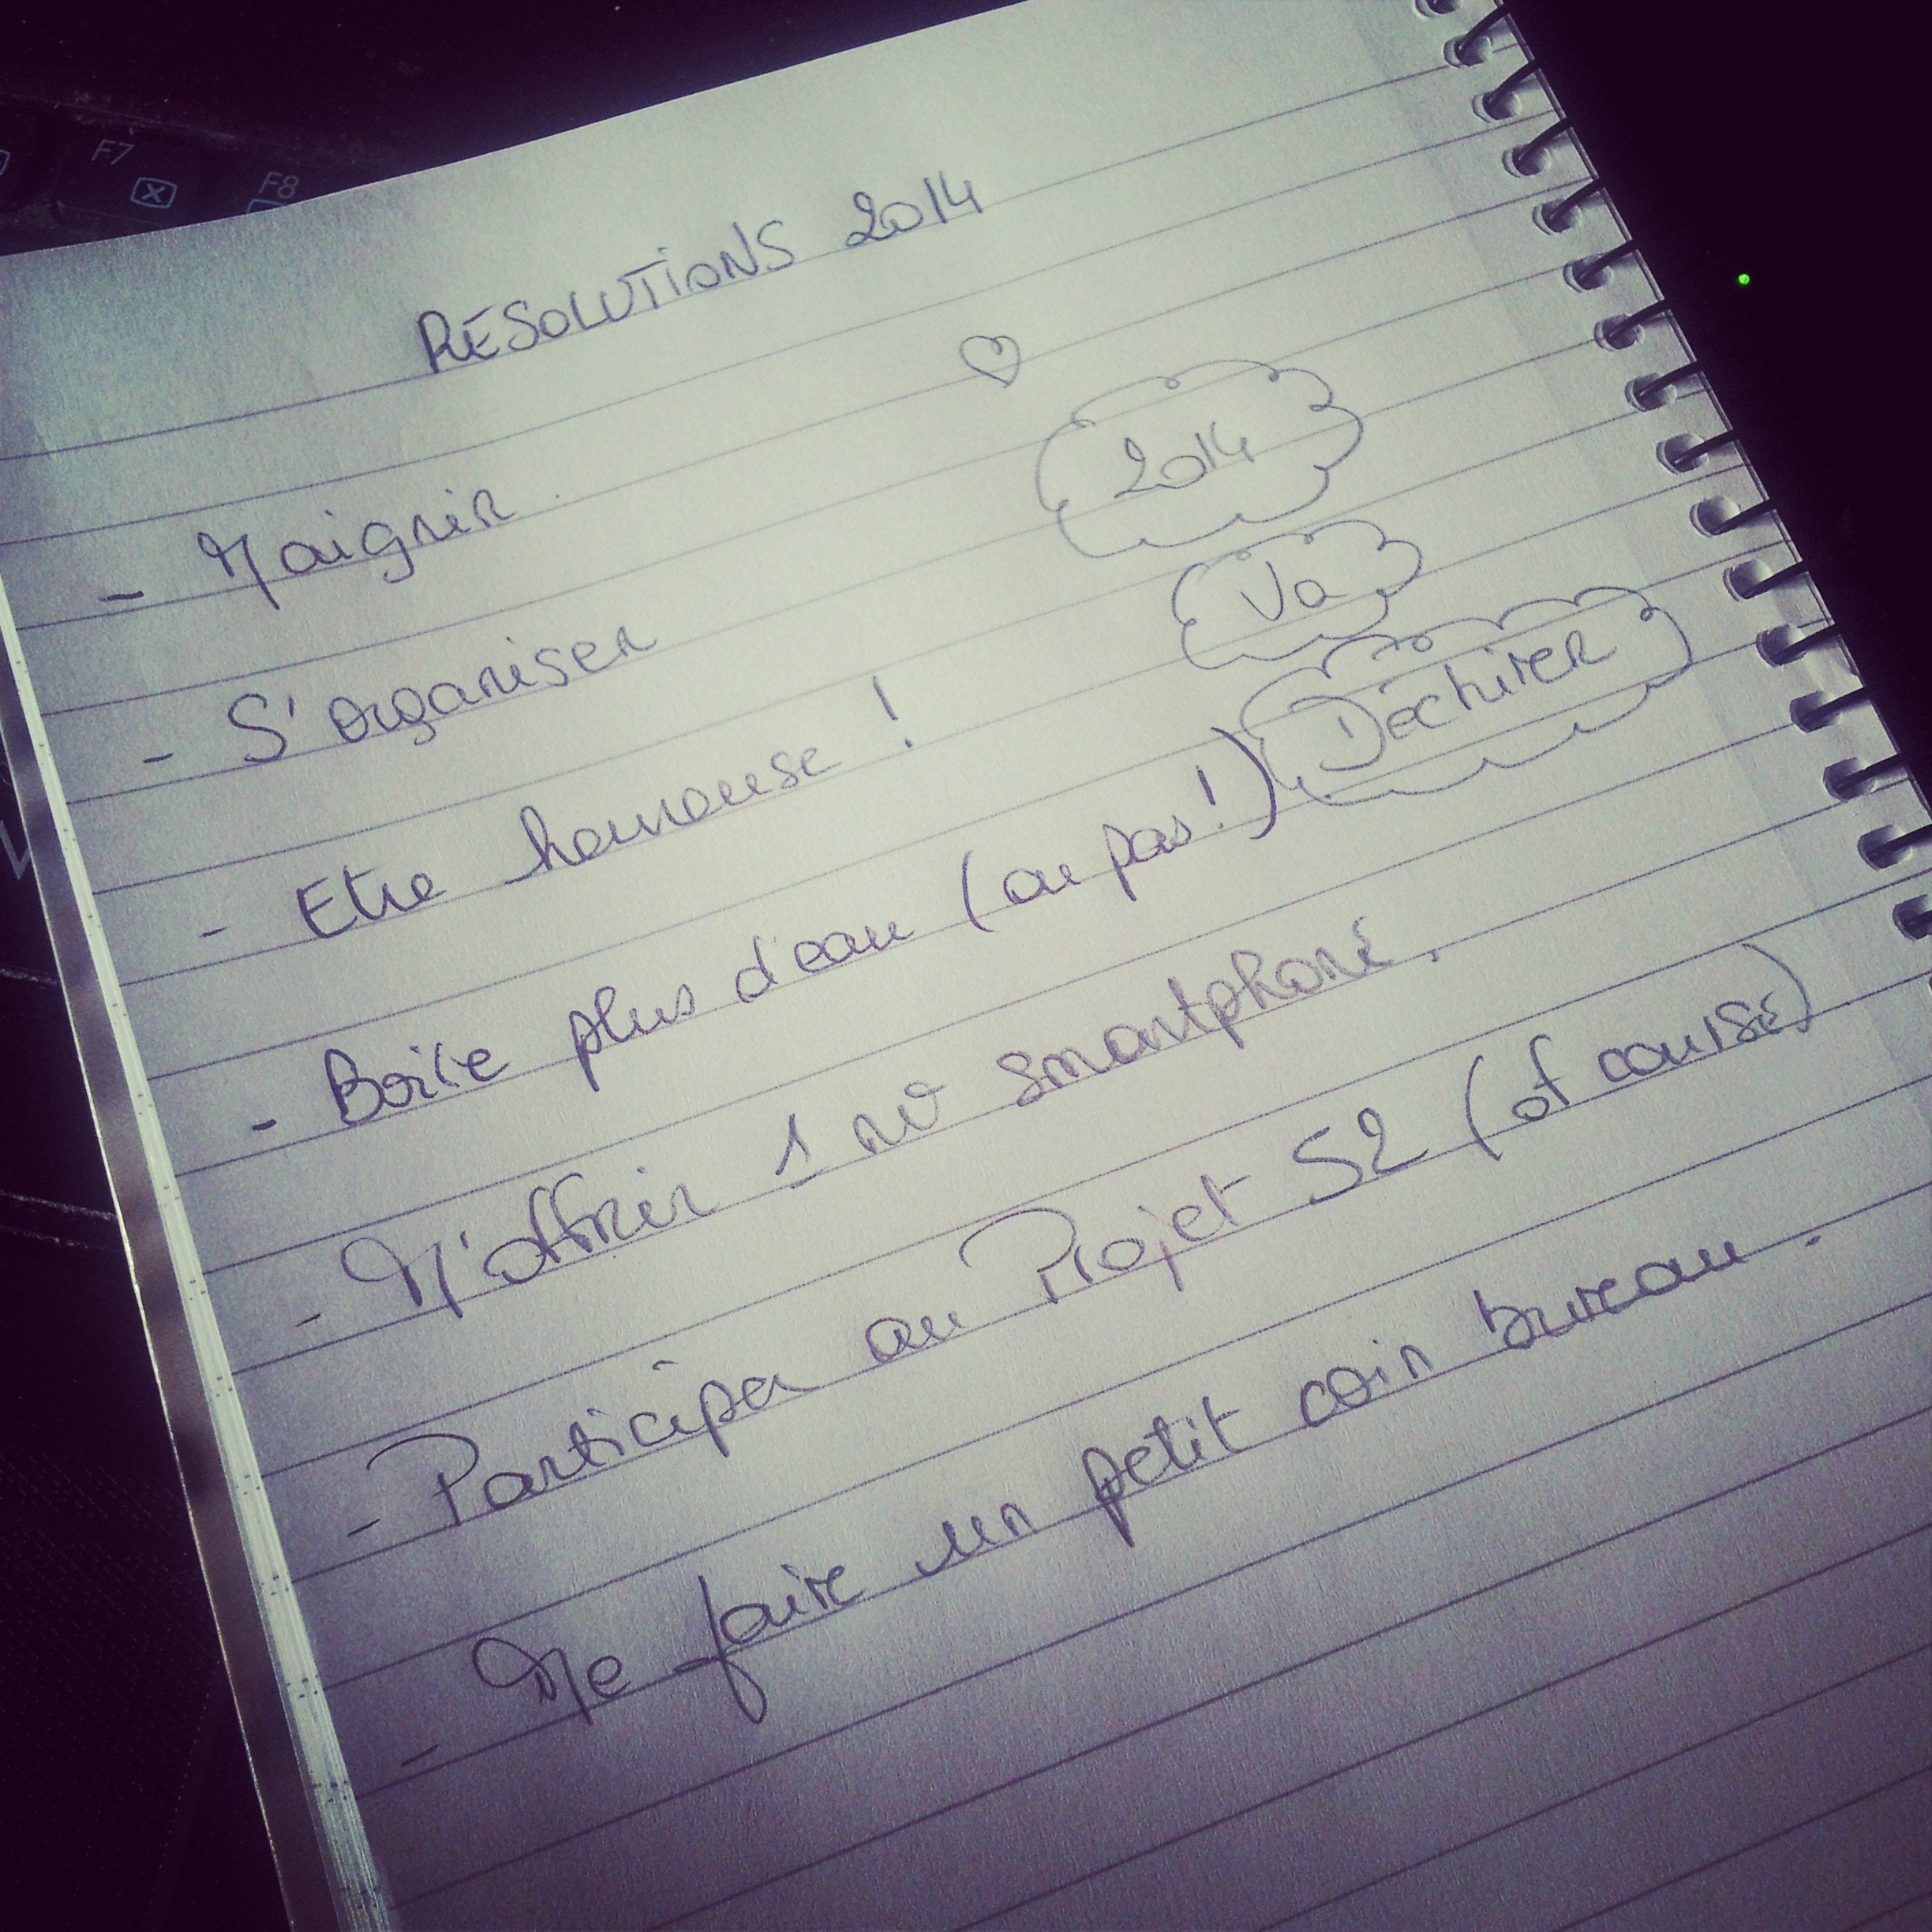 F7
F8
RÉSOLUTIONS 2014
- Maigrir
- S'organiser
- Etre heureuse !
- Boire plus d'eau (ou pas !)
- M'offrir 1 nv smartphone.
- Participer au Projet 52 (of course)
- Me faire un petit coin bureau.
2014
Va
Déchirer